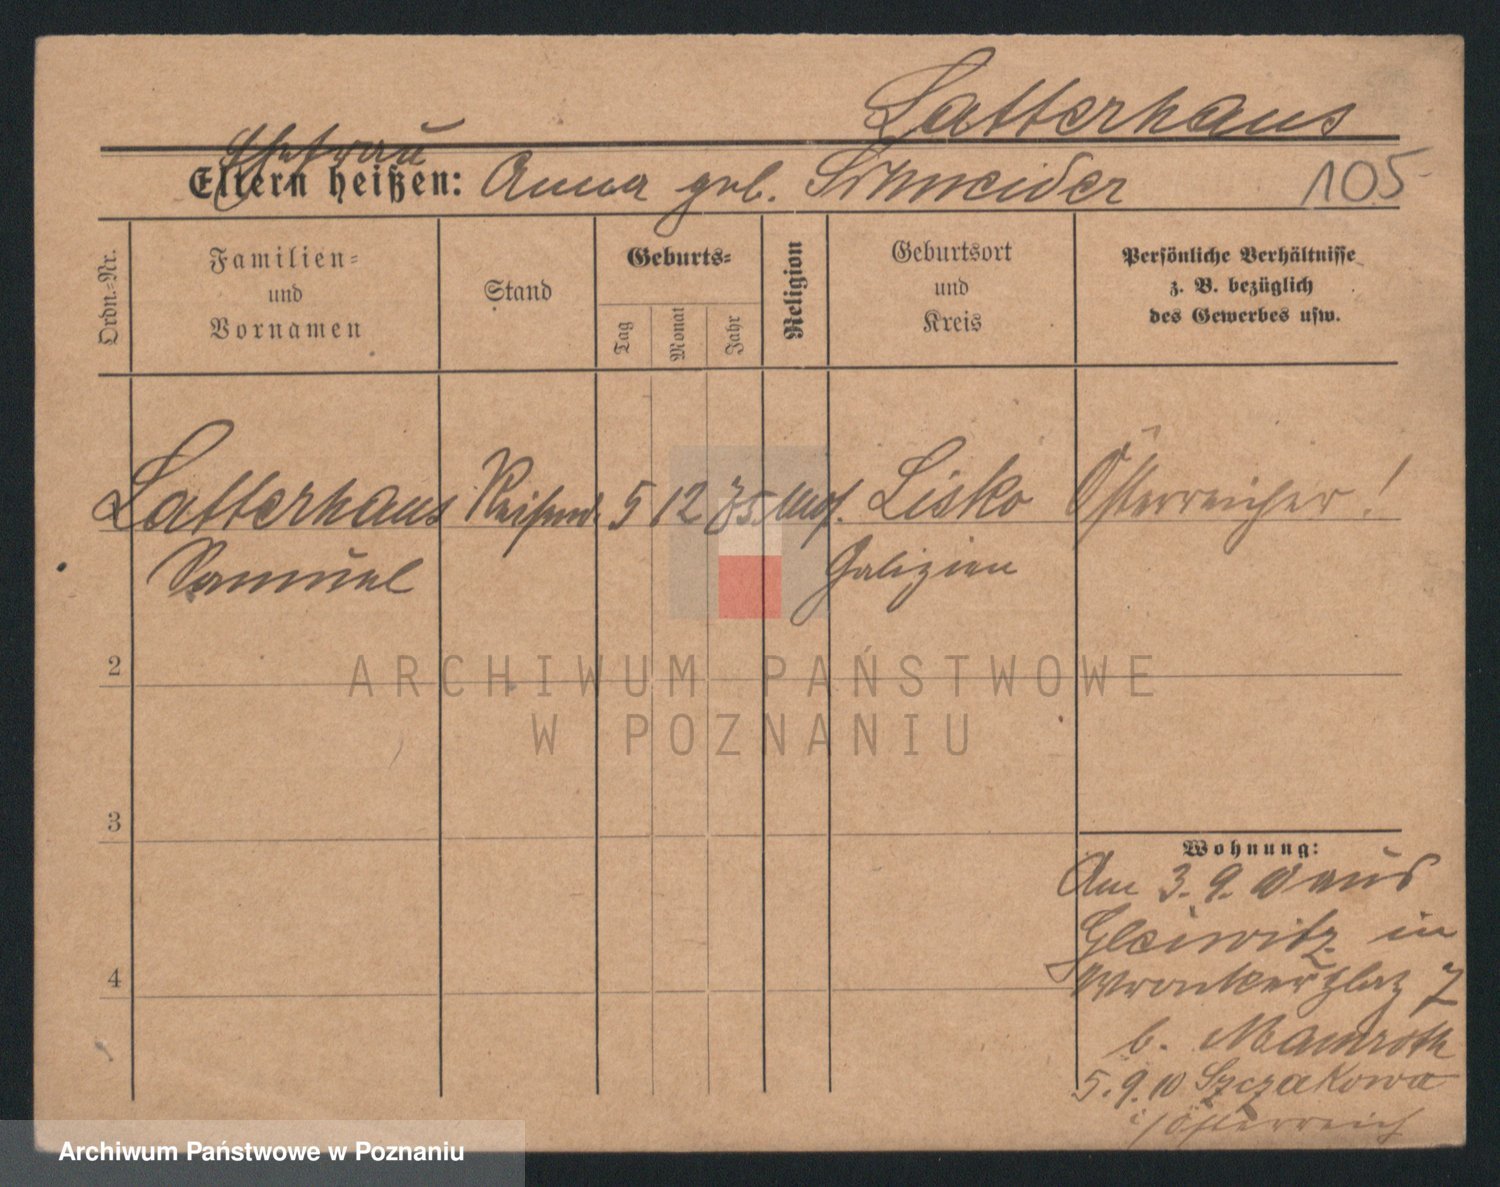 Latterhaus
Ehefrau
Eltern heißen: Anna geb. Schneider 105
Ordn.-Nr.
Familien-
und
Vornamen
Stand
Geburts-
Tag
Monat
Jahr
Religion
Geburtsort
und
Kreis
Persönliche Verhältnisse
z. B. bezüglich
des Gewerbes usw.
Latterhaus Reisend. 5 12 75. Mos. Lisko Österreicher!
Samuel Galizien
2
3
4
Wohnung:
Am 3. 9. 10 aus
Gleiwitz in
Wronkerplatz 7
b. Mamroth
5. 9. 10 Szczakowa
i/Österreich
ARCHIWUM PAŃSTWOWE
W POZNANIU
Archiwum Państwowe w Poznaniu